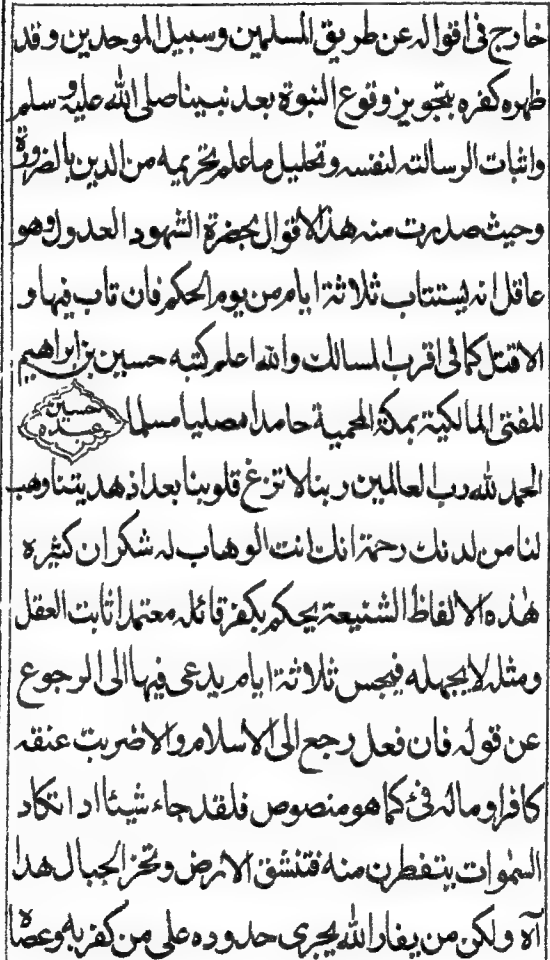 خارج فى اقواله عن طريق المسلمين وسبيل الموحدين وقد
ظهر كفره بتجويز وقوع النبوة بعد نبينا صلى الله عليه وسلم
واثبات الرسالته لنفسه وتحليل ما علم تحريمه من الدين بالضرورة
وحيث صدرت منه هذا الاقوال بحضرة الشهود العدول وهو
عاقل انه يستتاب ثلاثة ايام من يوم الحكم فان تاب فيها و
الا قتل كما فى اقرب المسالك والله اعلم كتبه حسين بن ابراهيم
للمفتى المالكية بمكة المحمية حامدا مصليا مسلما
حسين عبده
الحمد لله رب العالمين ربنا لا تزغ قلوبنا بعد اذ هديتنا وهب
لنا من لدنك رحمة انك انت الوهاب له شكران كثيره
هذه الالفاظ الشنيعة يحكم بكفر قائله معتمدا ثابت العقل
ومثله لا يجهله فيحبس ثلاثة ايام يدعى فيها الى الرجوع
عن قوله فان فعل رجع الى الاسلام والا ضربت عنقه
كافرا وماله فئ كما هو منصوص فلقد جاء شيئا اد اتكاد
السموات يتفطرن منه فتنشق الارض وتخر الجبال هدا
آه ولكن من يفار الله يجرى حدوده على من كفر به وعصاه